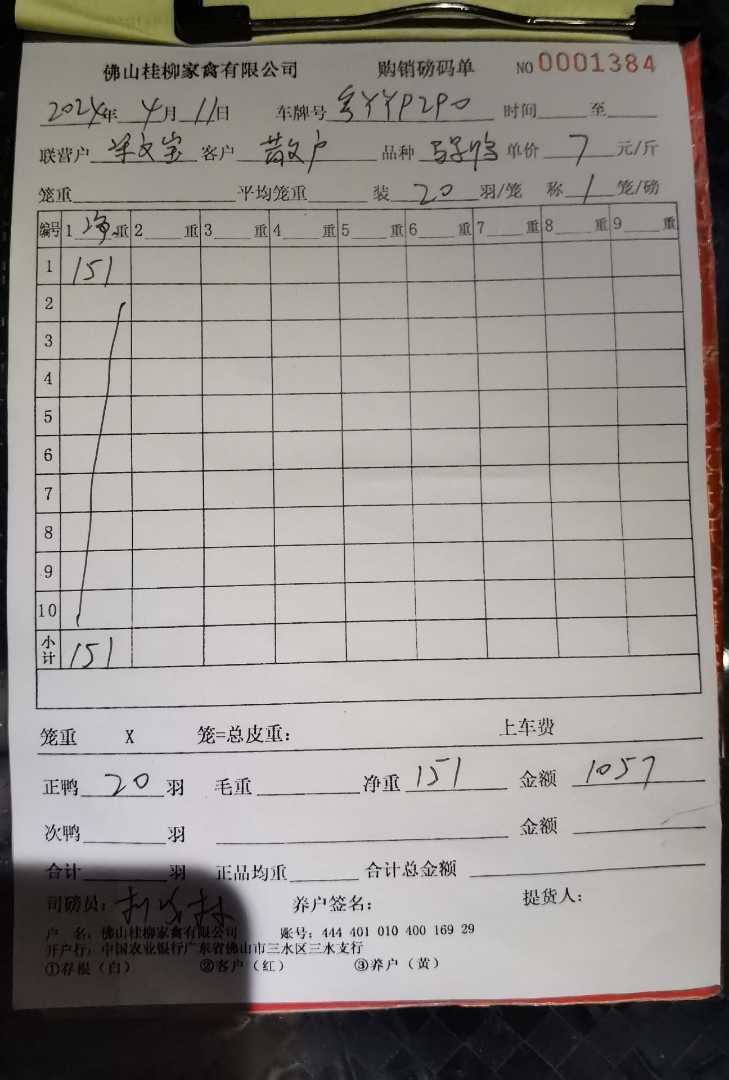 佛山桂柳家禽有限公司 购销磅码单 NO 0001384
2024年 4月 11日 车牌号 P2P0 时间 至
联营户 文 客户 散户 品种 单价 7 元/斤
笼重 平均笼重 装 20 羽/笼 称 1 笼/磅
编号 1 净 重 2 重 3 重 4 重 5 重 6 重 7 重 8 重 9 重
1 151
2
3
4
5
6
7
8
9
10
小计 151
笼重 X 笼=总皮重: 上车费
正鸭 20 羽 毛重 净重 151 金额 1057
次鸭 羽 金额
合计 羽 正品均重 合计总金额
司磅员: 养户签名: 提货人:
户 名: 佛山桂柳家禽有限公司 账号: 444 401 010 400 169 29
开户行: 中国农业银行广东省佛山市三水区三水支行
①存根(白) ②客户(红) ③养户(黄)